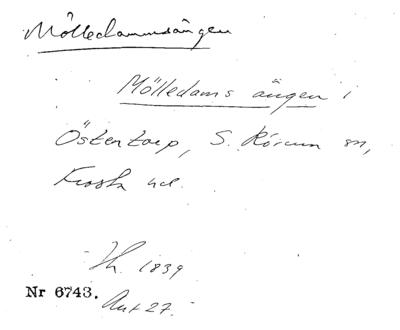 Mölledammsängen
Mölledams ängen i
Östentorp, S. Rörum sn,
Frosta hd.
1839
Nr 6743.
Akt 27.